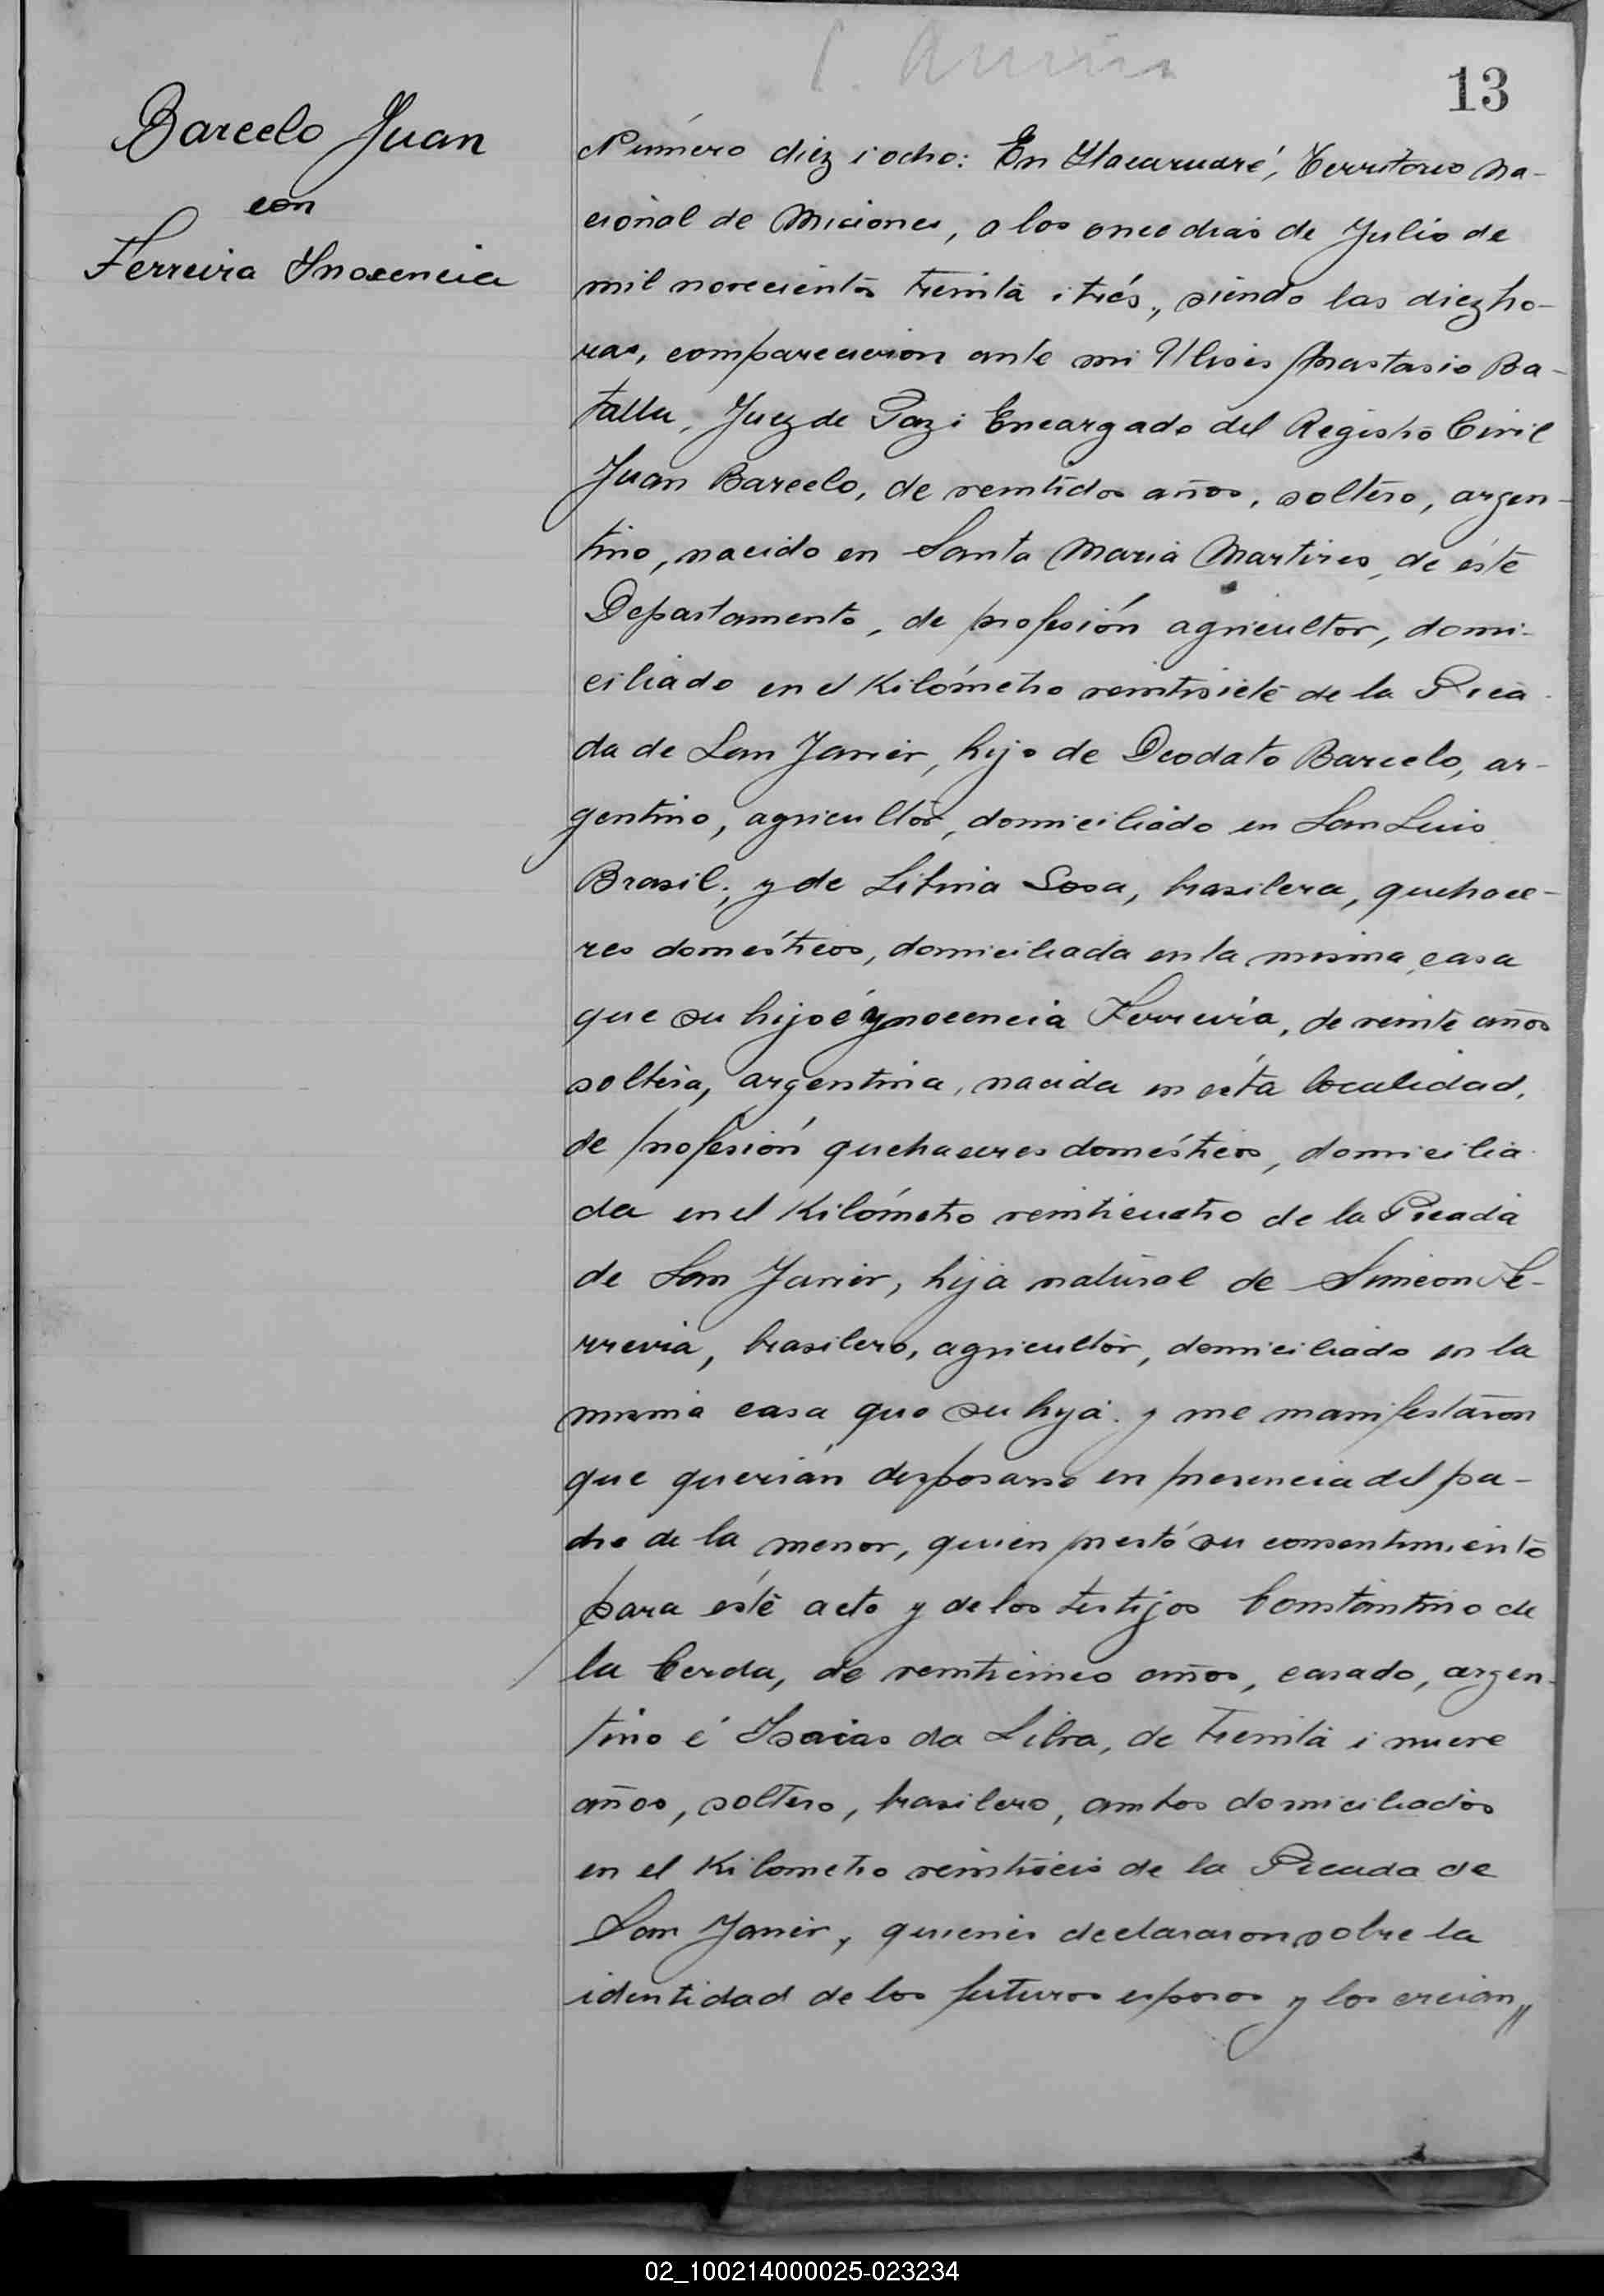 13
Barcelo Juan
con
Ferreira Inocencia
Número diez i ocho: En Itacaruaré, Territorio Na-
cional de Miciones, a los once dias de Julio de
mil novecientos treinta i trés, siendo las diez ho-
ras, comparecieron ante mi Ulises Anastasio Ba-
talla, Juez de Paz i Encargado del Registro Civil
Juan Barcelo, de veintidos años, soltero, argen-
tino, nacido en Santa Maria Martires, de éste
Departamento, de profesión agricultor, domi-
ciliado en el Kilómetro veintisiete de la Pica
da de San Javier, hijo de Deodato Barcelo, ar-
gentino, agricultor, domiciliado en San Luis
Brasil; y de Sosa, brasilera, quehace-
res domésticos, domiciliada en la misma casa
que su hijo é ynocencia Ferreira, de veinte años
soltera, argentina, nacida en esta localidad,
de profesión quehaceres domésticos, domicilia
da en el Kilómetro veinticuatro de la Picada
de San Javier, hija natural de Simeon Fe-
rreira, brasilero, agricultor, domiciliado en la
misma casa que su hija. y me manifestaron
que querian desposarse en presencia del pa-
dre de la menor, quien prestó su consentimiento
para éste acto y de los testijos Constantino de
la Cerda, de veinticinco años, casado, argen-
tino é Isaias da, de treinta i nueve
años, soltero, brasilero, ambos domiciliados
en el Kilometro veintiseis de la Picada de
San Javier, quienes declararon sobre la
identidad de los futuros esposos y los creian„
02_100214000025-023234